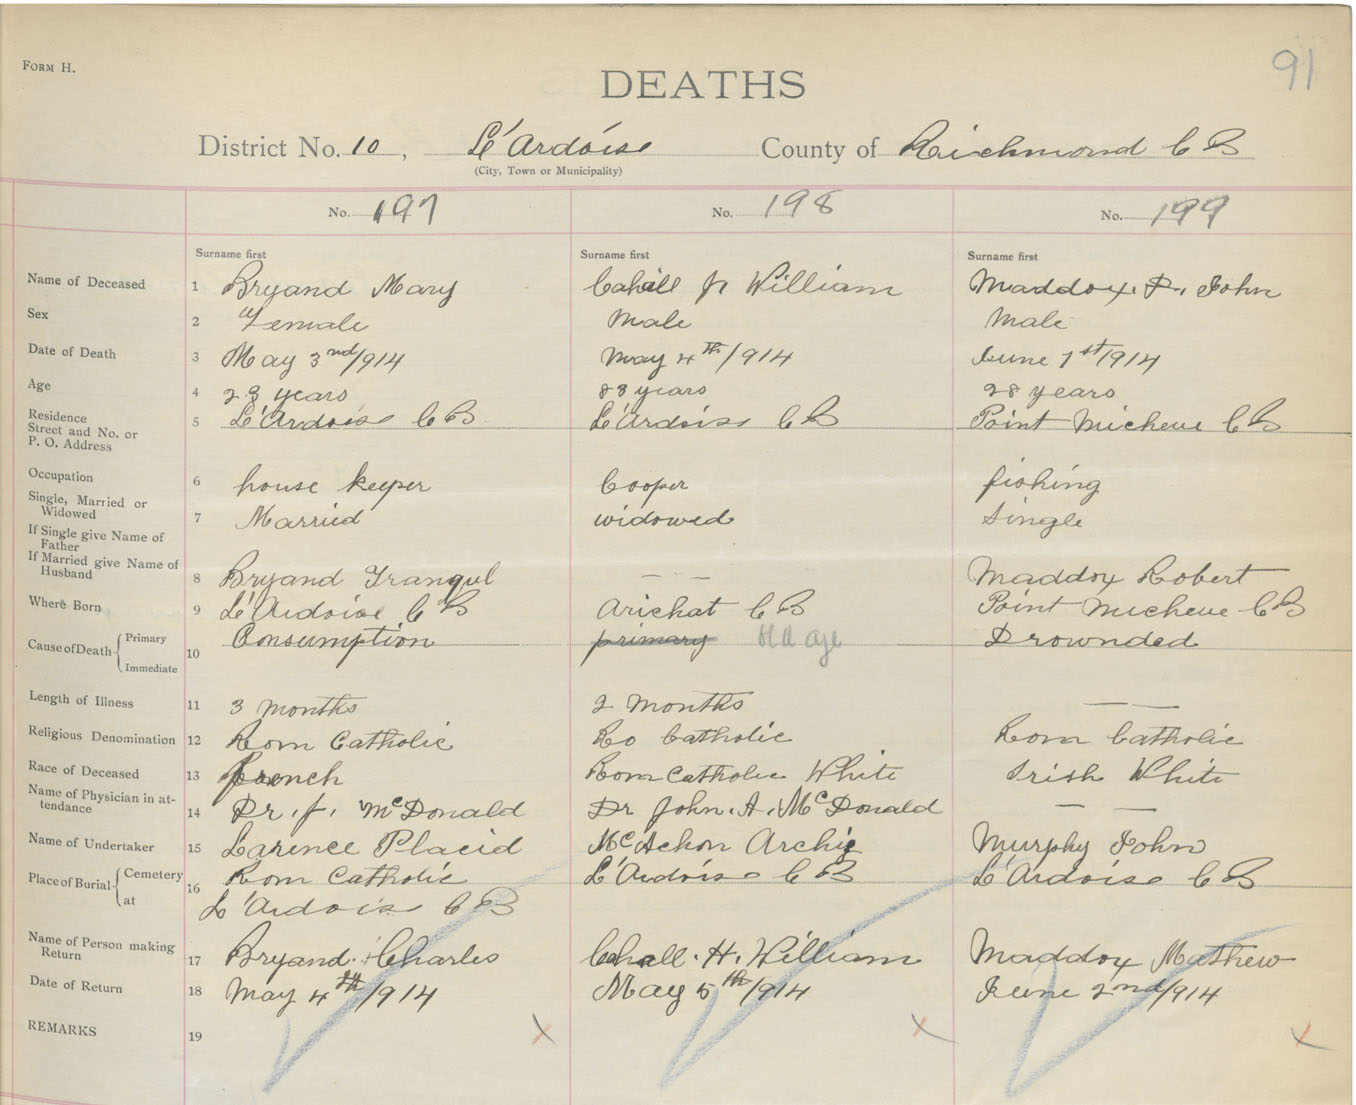 FORM H.
91
DEATHS
District No. 10, L'Ardoise County of Richmond C B
(City, Town or Municipality)
No. 197 No. 198 No. 199
Surname first Surname first Surname first
Name of Deceased 1 Bryand Mary Cahill Jr William Maddox. P. John
Sex 2 Female Male Male
Date of Death 3 May 3nd/914 May 4th/914 June 1st/914
Age 4 23 years 83 years 28 years
Residence
Street and No. or 5 L'Ardoise C B L'Ardoise C B Point Micheue C B
P. O. Address
Occupation 6 house keeper Cooper fishing
Single, Married or
Widowed 7 Married widowed Single
If Single give Name of
Father
If Married give Name of
Husband 8 Bryand Tranqul — — Maddox Robert
Where Born 9 L'Ardoise C B Arichat C B Point Micheue C B
Cause of Death Primary Consumption primary Old age Drownded
Immediate 10
Length of Illness 11 3 months 2 months — —
Religious Denomination 12 Rom Catholic Ro Catholic Rom Catholic
Race of Deceased 13 french Rom Catholic White Irish White
Name of Physician in at-
tendance 14 Dr. J. McDonald Dr John. A. McDonald — —
Name of Undertaker 15 Larence Placid McAchon Archie Murphy John
Place of Burial Cemetery 16 Rom Catholic L'Ardoise C B L'Ardoise C B
at L'Ardoise C B
Name of Person making
Return 17 Bryand. Charles Cahall. H. William Maddox Mathew
Date of Return 18 May 4th/914 May 5th/914 June 2nd/914
REMARKS 19 x x x